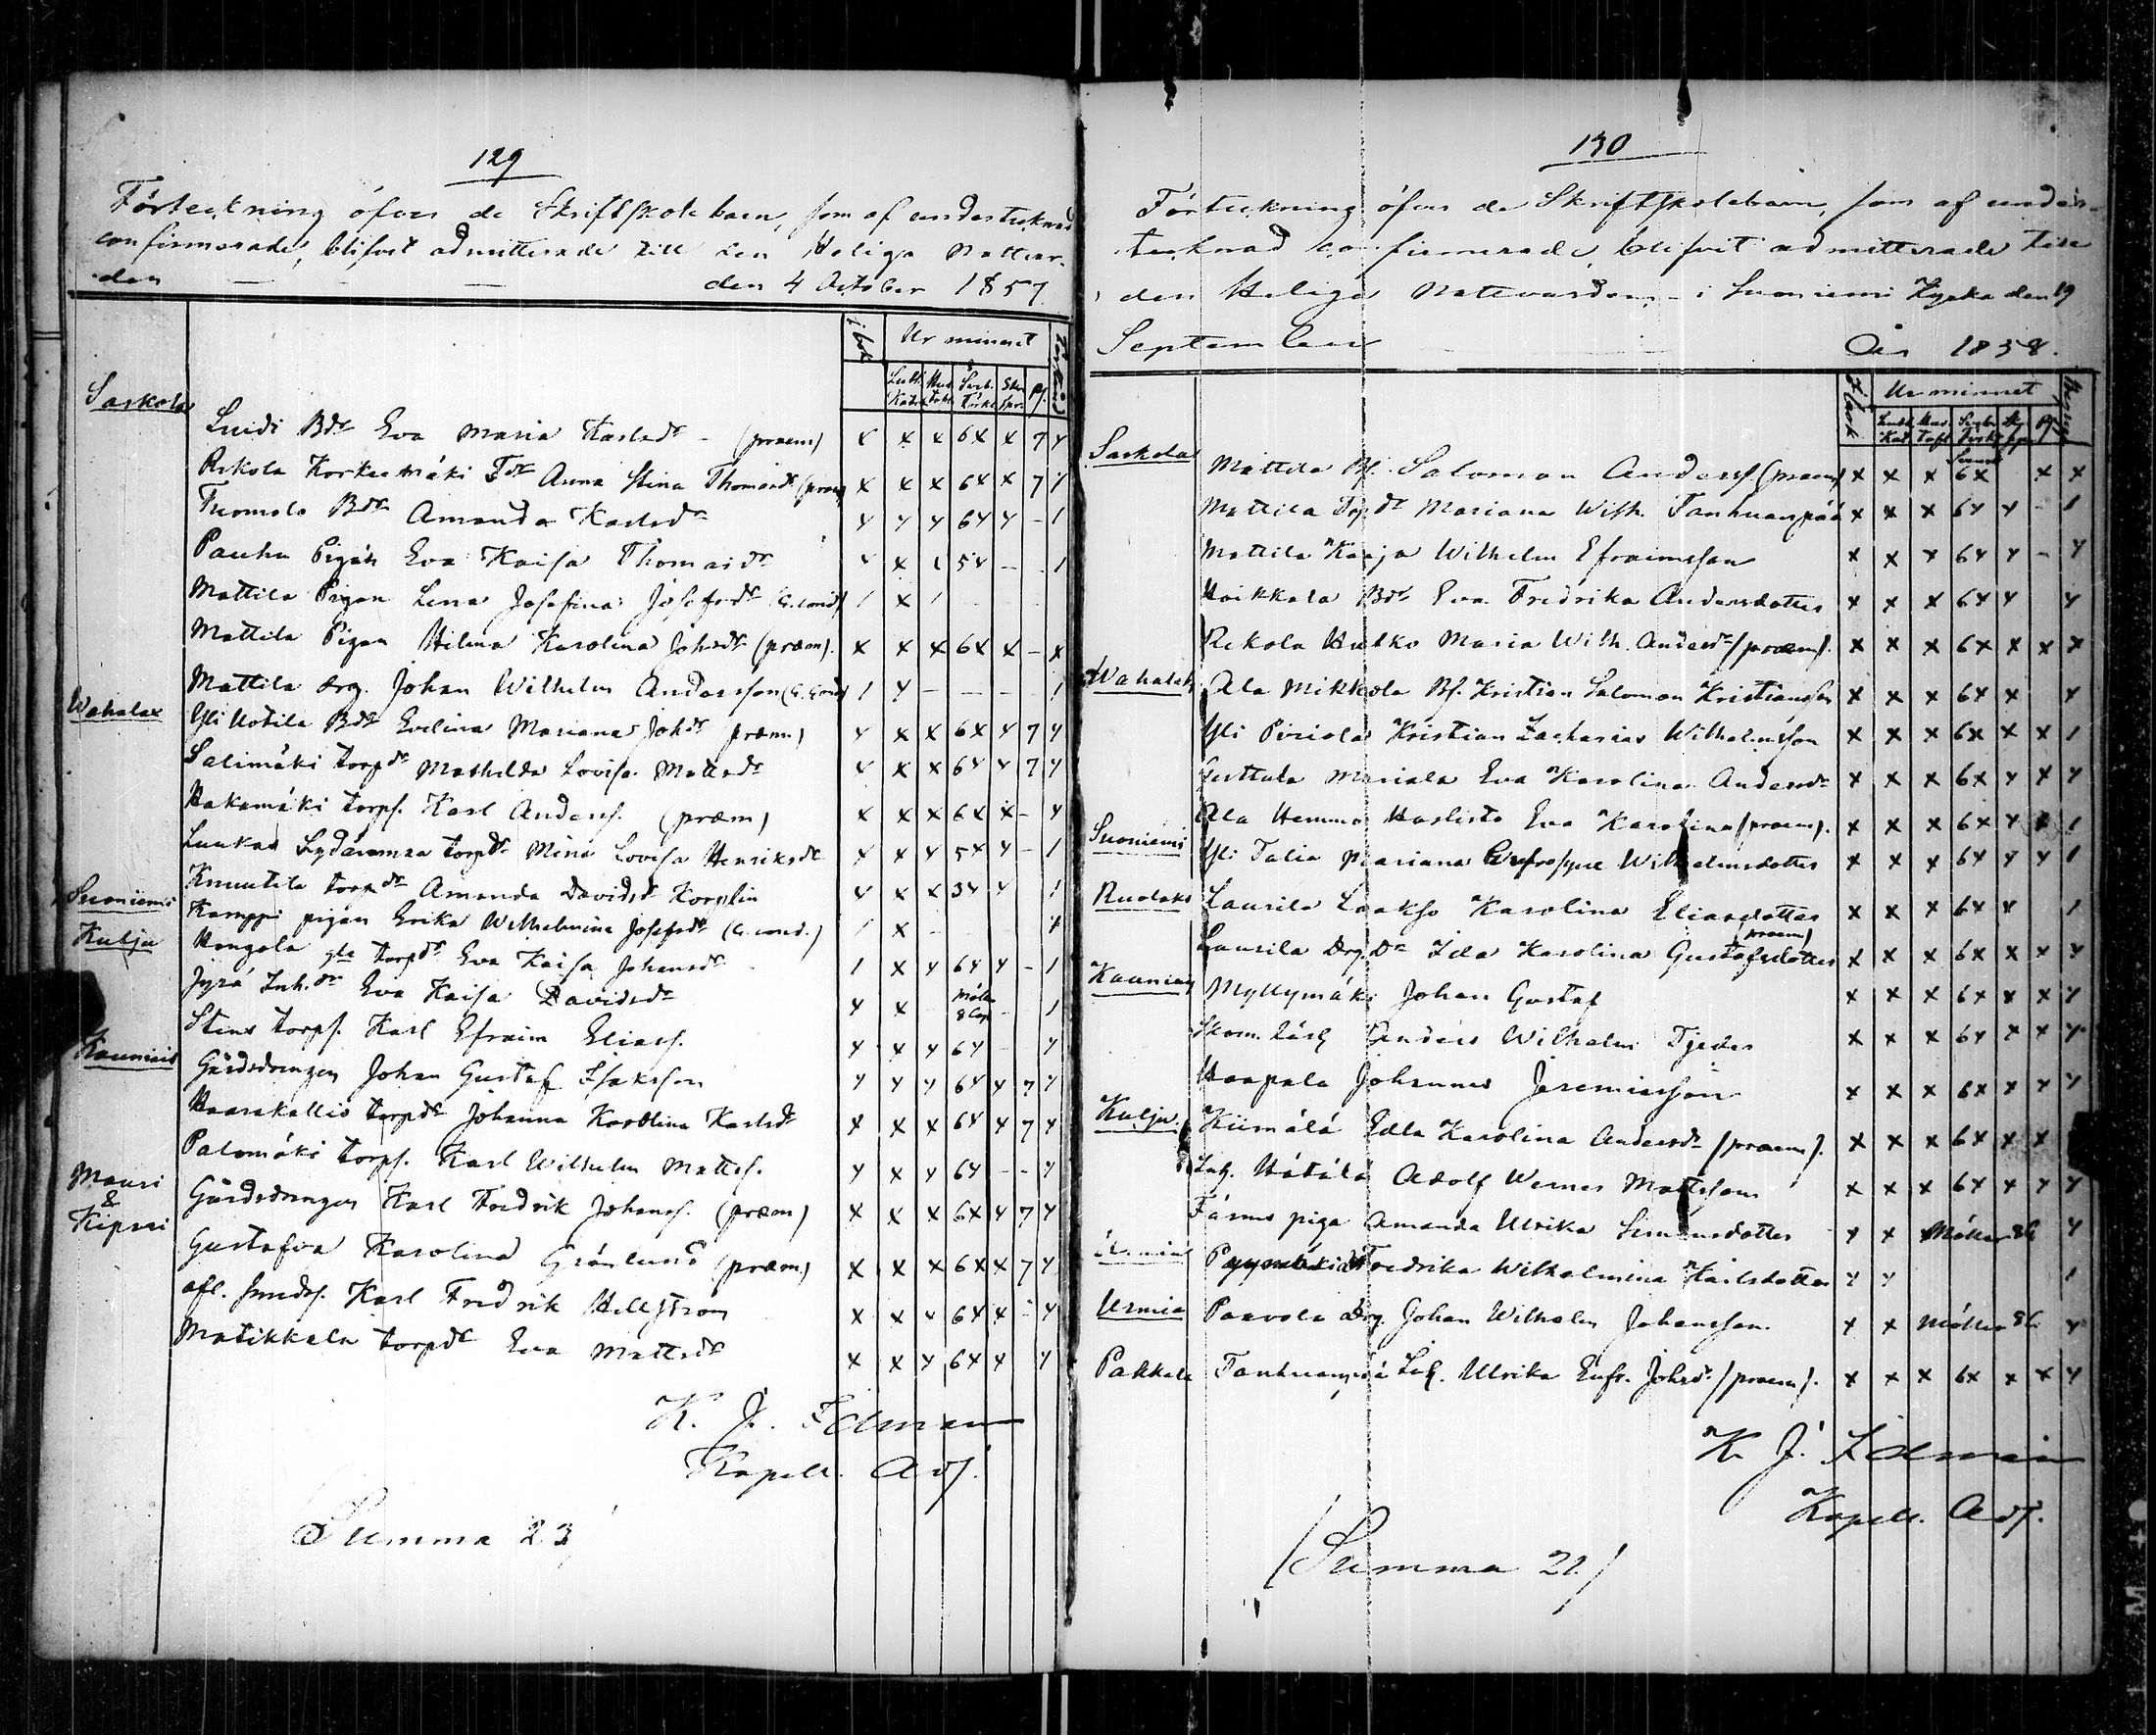 129
Förteckning öfver de Skriftskolebarn, som af undertecknad
confirmerade, blifvit admitterade till den Heliga Nattvar-
den — — den 4 October 1857.
i bok Ur minnet
Luth. Katek. Hus tafl. Förkl. Skr. spr. Ps.
Saskola
Luidi Bdr Eva Maria Karlsdr - (præm) x x x 6x x 7 x
Rekola Korkeemäki Tdr Anna Stina Thomasdr (præm) x x x 6x x 7 x
Tuomola Bdr Amanda Karlsdr x x x 6x x - 1
Pauhu Pigan Eva Kaisa Thomasdr x x 1 5x - 1
Mattila Pigan Lena Josefina Josefsdr (C. cond) 1 x 1
Mattila Pigan Hilma Karolina Johsdr (præm). x x x 6x x - x
Mattila drg. Johan Wilhelm Andersson (C. Cond) 1 x - - - 1
Wahalax Yli Uotila Bdr Evelina Mariana Johdr præm) x x x 6x x 7 x
Salimäki torpdr Mathilda Lovisa Mattsdr x x x 6x x 7 x
Hakamäki torps. Karl Anderss. (præm) x x x 6x x - x
Laukas torpdr Mina Lovisa Henriksdr x x x 5x x - 1
Suoniemi Knuutila torpdr Amanda Davidsdr x x x 3x x 1
Kulju Kamppi pigan Erika Wilhelmina Josefsdr (C. cond.) 1 x - x
Hongola gla torpdr Eva Kaisa Johansdr 1 x x 6x x - 1
Jyrä Inh. dr Eva Kaisa Davidsdr x x 1
Stens torps. Karl Efraim Eliass. x x x 6x x
Kauniais Gårdsdrengen Johan Gustaf Isaksson x x x 6x x 7 x
Haarakallio torpdr Johanna Karolina Karlsdr x x x 6x x 7 x
Palomäki torps. Karl Wilhelm Mattss. x x x 6x - - x
Mauri & Kipari Gårdsdrengen Karl Fredrik Johanss. (præm) x x x 6x x 7 x
Gustafva Karolina Grönlund (præm) x x x 6x x 7 x
afl. smeds. Karl Fredrik Hellström x x x 6x x - x
Matikkala torpdr Eva Mattsdr x x x 6x x x
K. J. Idman
Kapell. Adj.
Summa 23
130
Förteckning öfver de Skriftskolebarn, som af under-
tecknad confirmerade blifvit admitterade till
den Heliga Nattvarden - i Suoniemi Kyrka den 19
September År 1858.
Ur minnet
Saskola Mattila Bs. Salomon Anderss (præm) x x x 6x x x
Mattila Torpdr Mariana Wilh. Tanhuanpää x x x 6x x - 1
Mattila Karja Wilhelm Efraimsson x x x 6x x - x
Hoikkala Bdr Eva Fredrika Andersdotter x x x 6x x x
Rekola Hulko Maria Wilh. Andersdr (præm). x x x 6x x x x
Wahalax Ala Mikkola Bs. Kristian Salomon Kristiansson x x x 6x x x
Yli Piriola Kristian Zacharias Wilhelmsson x x x 6x x x 1
Mariala Eva Karolina Andersdr x x x 6x x x x
Ala Hemmo Haslisto Eva Karolina (præm). x x x 6x x x 1
Suoniemi Yli Talia Mariana Eufrosyne Wilhelmsdotter x x x 6x x x 1
Laurila Laakso Karolina Eliasdotter x x x 6x x 1
Laurila Drg.Dr Ida Karolina Gustafsdotter (præm) x x x 6x x x x
Kauniais Myllymäki Johan Gustaf x x x 6x x x x
Skom. lärl. Anders Wilhelm Tjeder x x x 6x x x x
Haapala Johannes Jeremiasson x x x 6x x x x
Kulju Kiimälä Edla Karolina Andersdr (præm). x x x 6x x x
Inh. Hätälä Adolf Werner Mattsson x x x 6x x x x
Färms piga Amanda Ulrika Simonsdotter x x x
Fredrika Wilhelmina Karlsdotter x x 1
Urmia Paavola Drg. Johan Wilhelm Johansson. x x x
Pakkala Tanhuanpää Inh. Ulrika Eufr. Johsdr (præm). x x x 6x x x x
K. J. Idman
Kapell. Adj.
(Summa 21)